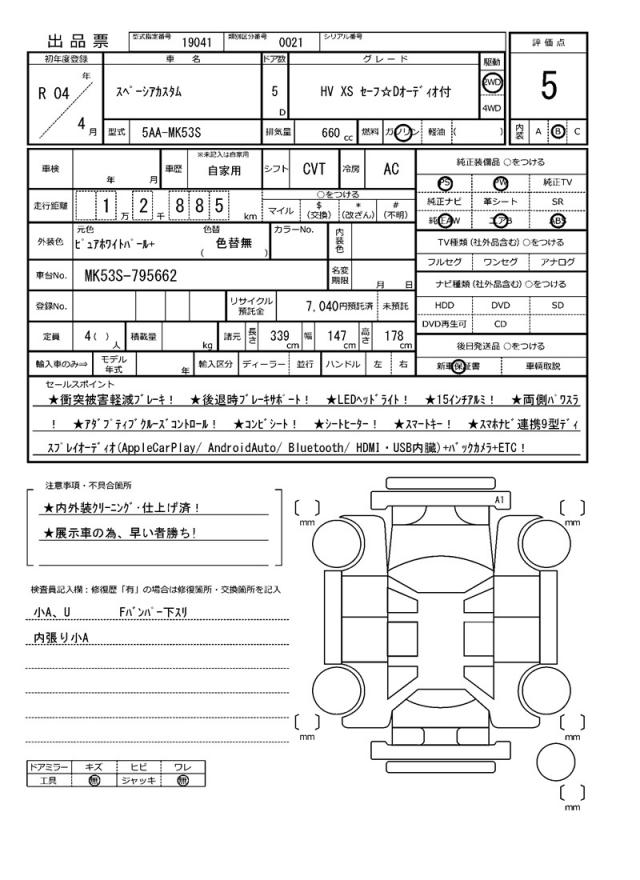 出品票 型式指定番号 19041 類別区分番号 0021 シリアル番号
評価点
初年度登録 車名 ドア数 グレード 駆動
R 04 年 スペーシアカスタム 5 D HV XS セーフ☆Dオーディオ付 2WD 5
4WD
4 月 型式 5AA-MK53S 排気量 660 cc 燃料 ガソリン 軽油 ( ) 内装 A B C
車検 年 月 車歴 ※未記入は自家用 自家用 シフト CVT 冷房 AC 純正装備品 ○をつける
PS PW 純正TV
走行距離 1 万 2 千 8 8 5 km ○をつける 純正ナビ 革シート SR
マイル $(交換) *(改ざん) #(不明) 純正AW エアB ABS
外装色 元色 ピュアホワイトパール+ 色替 ( 色替無 ) カラーNo. 内装色 TV種類 (社外品含む) ○をつける
フルセグ ワンセグ アナログ
車台No. MK53S-795662 名変期限 月 日 ナビ種類 (社外品含む) ○をつける
登録No. リサイクル預託金 7,040円預託済 未預託 HDD DVD SD
DVD再生可 CD
定員 4( ) 人 積載量 kg 諸元 長さ 339 cm 幅 147 cm 高さ 178 cm 後日発送品 ○をつける
輸入車のみ⇒ モデル年式 年 輸入区分 ディーラー 並行 ハンドル 左 右 新車保証書 車輌取説
セールスポイント
★衝突被害軽減ブレーキ! ★後退時ブレーキサポート! ★LEDヘッドライト! ★15インチアルミ! ★両側パワスラ
! ★アダプティブクルーズコントロール! ★コンビシート! ★シートヒーター! ★スマートキー! ★スマホナビ連携9型ディ
スプレイオーディオ(AppleCarPlay/ AndroidAuto/ Bluetooth/ HDMI・USB内臓)+バックカメラ+ETC!
注意事項・不具合箇所
★内外装クリーニング・仕上げ済!
★展示車の為、早い者勝ち!
A1
[ ] mm [ ] mm
検査員記入欄:修復歴「有」の場合は修復箇所・交換箇所を記入
小A、U Fバンパー下スリ
内張り小A
[ ] mm [ ] mm
ドアミラー キズ ヒビ ワレ
工具 無 ジャッキ 無
[ ] mm